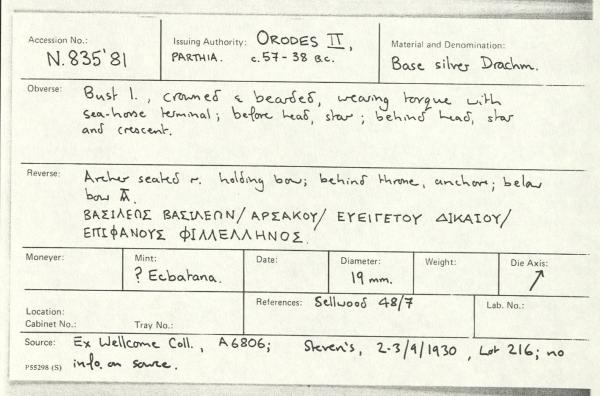 Accession No.: N.835'81
Issuing Authority: ORODES II,
PARTHIA. c.57-38 B.C.
Material and Denomination:
Base silver Drachm.
Obverse: Bust l., crowned & bearded, wearing torque with
sea-horse terminal; before head, star; behind head, star
and crescent.
Reverse: Archer seated r. holding bow; behind throne, anchor; below
bow
ΒΑΣΙΛΕΩΣ ΒΑΣΙΛΕΩΝ/ ΑΡΣΑΚΟΥ/ ΕΥΕΙΓΕΤΟΥ ΔΙΚΑΙΟΥ/
ΕΠΙΦΑΝΟΥΣ ΦΙΛΛΕΛΛΗΝΟΣ.
Moneyer:
Mint:
? Ecbatana.
Date:
Diameter:
19 mm.
Weight:
Die Axis:
↗
Location:
Cabinet No.: Tray No.:
References: Sellwood 48/7
Lab. No.:
Source: Ex Wellcome Coll., A6806; Steven's, 2-3/9/1930, Lot 216; no
P55298 (S) info. on source.